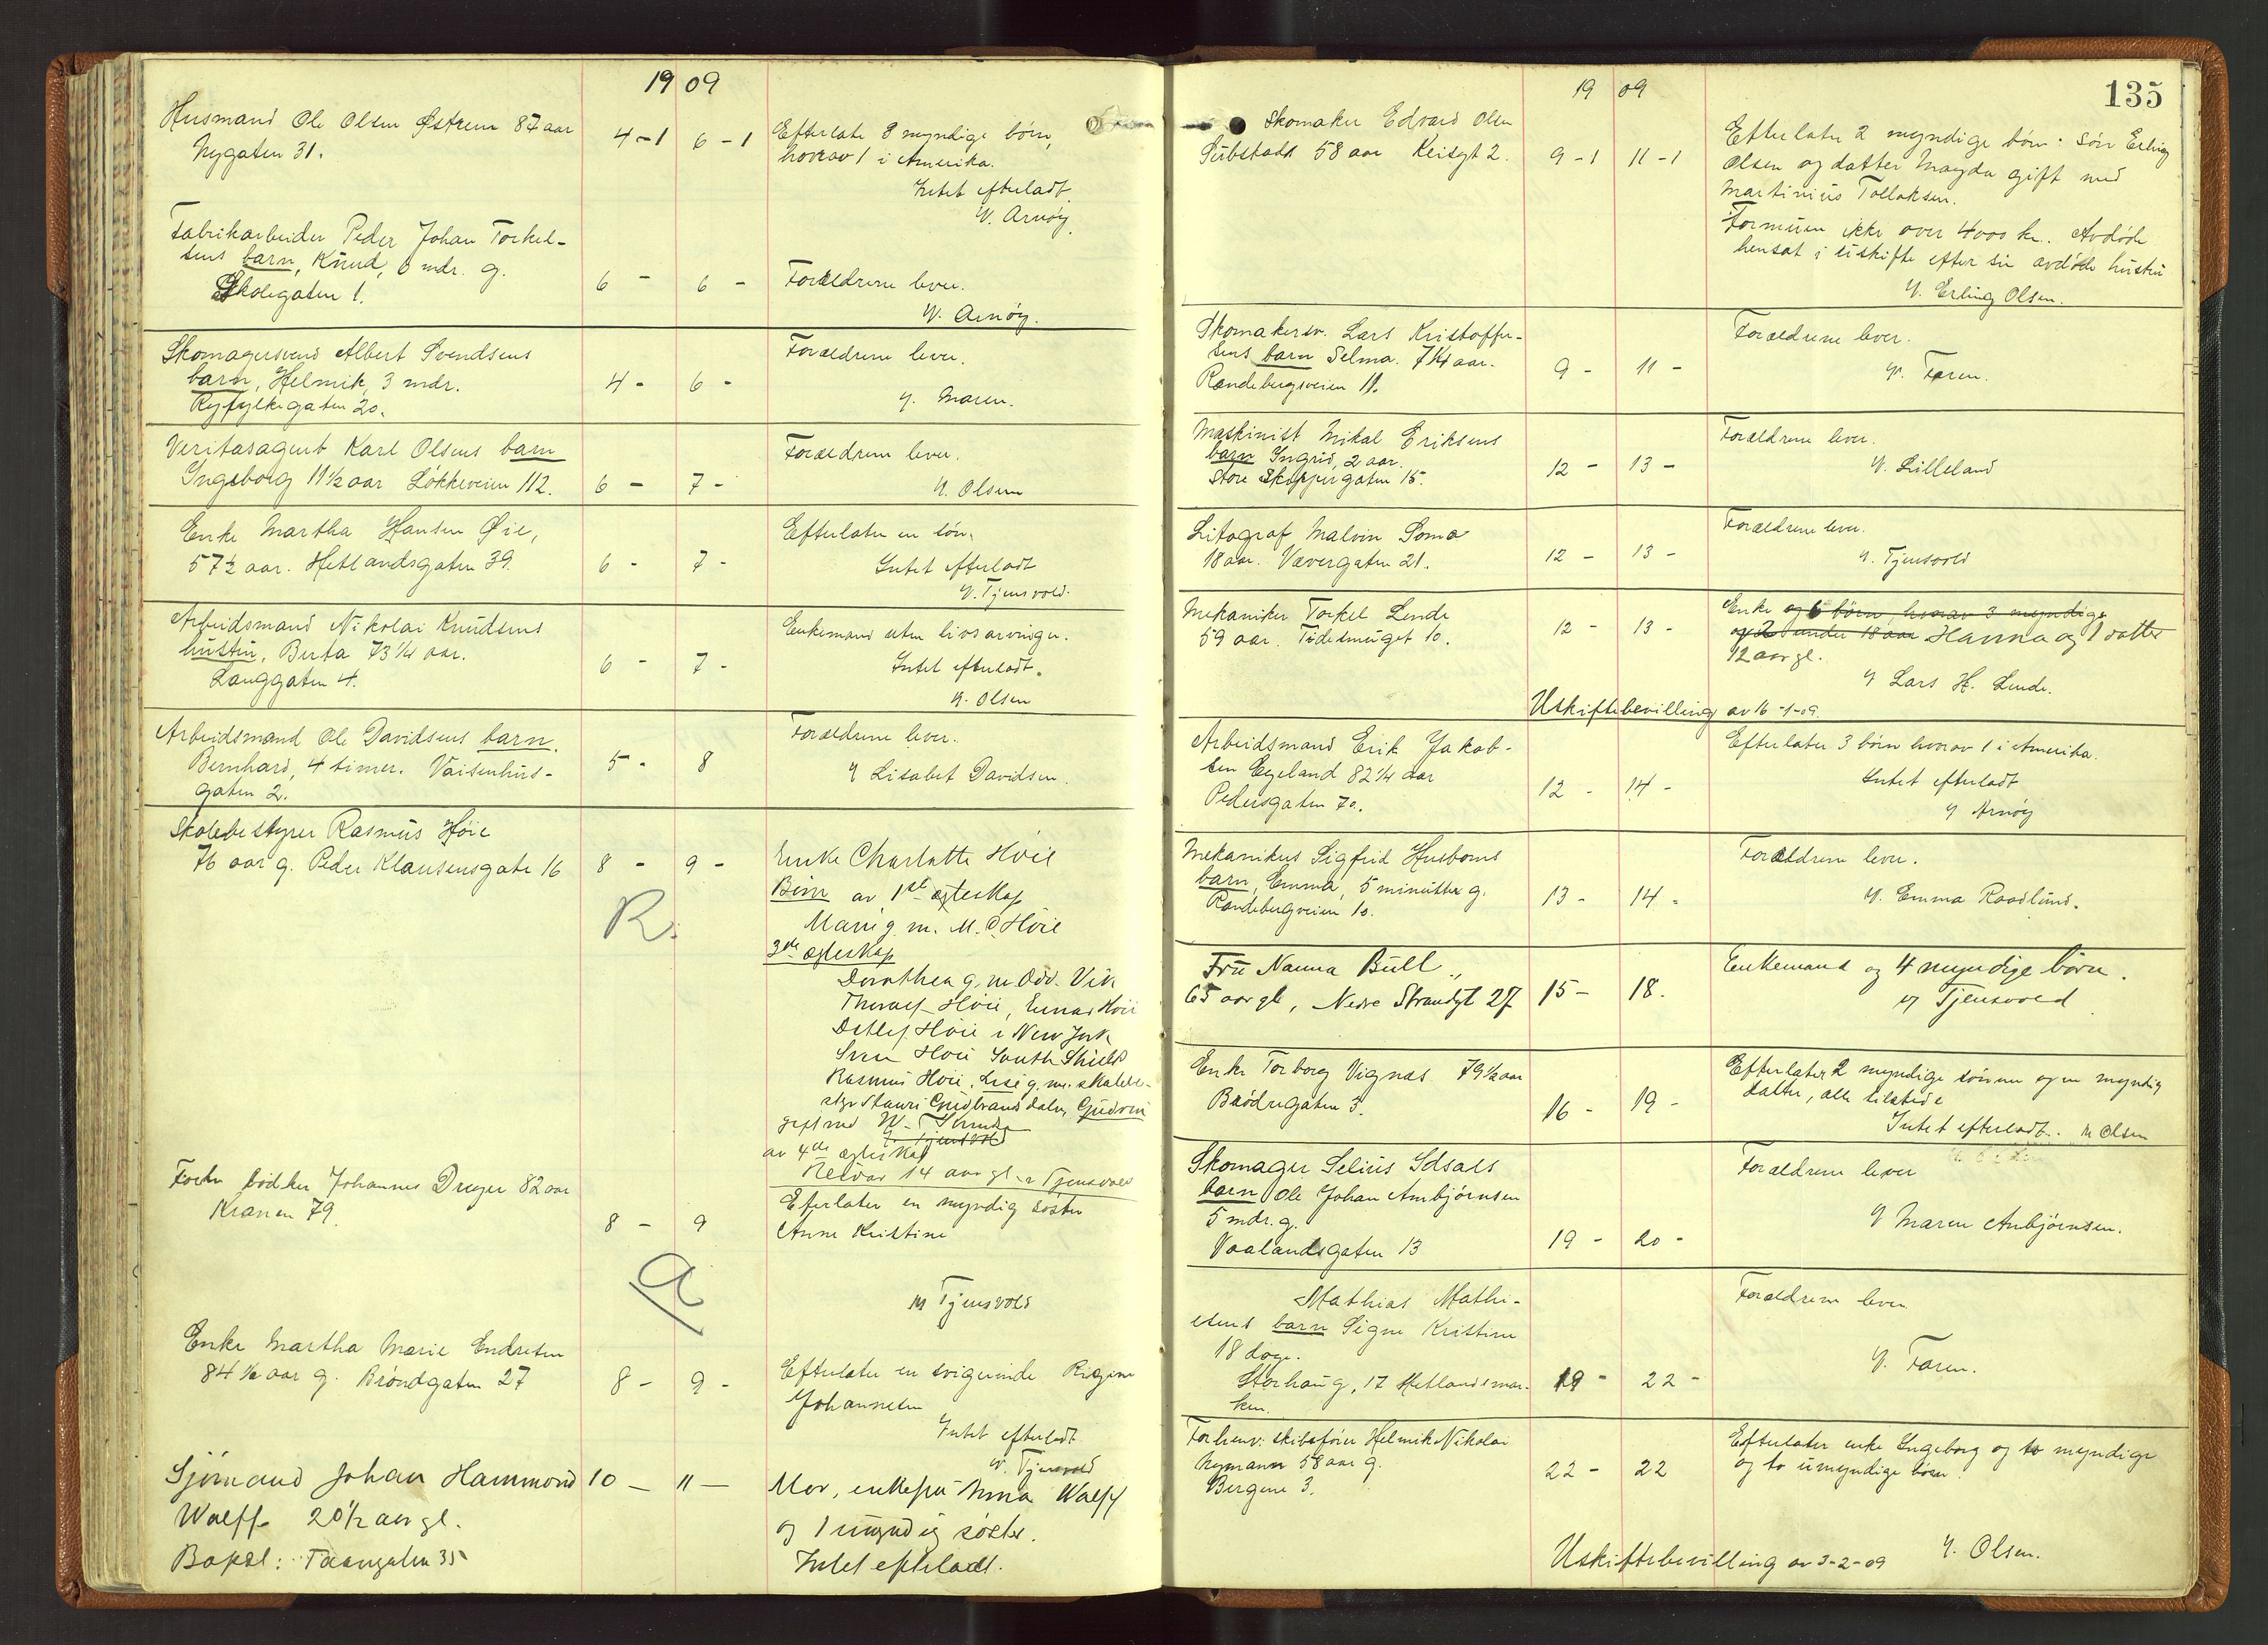 1909
Husmand Ole Olsen Østrem 87 aar
Nygaten 31.
4-1 6-1
Efterlater 8 myndige børn,
hvorav 1 i Amerika.
Intet efterladt.
V. Arnøy.
Fabrikarbeider Peder Johan Torkel-
sens barn, Knud, 6 mdr. g.
Skolegaten 1.
6 - 6 -
Forældrene lever.
V. Arnøy.
Skomagersvend Albert Svendsens
barn, Helmik, 3 mdr.
Ryfylkegaten 20.
4 - 6 -
Forældrene lever.
V. Maren.
Veritasagent Karl Olsens barn
Ingeborg 11½ aar Løkkeveien 112.
6 - 7 -
Forældrene lever.
V. Olsen
Enke Martha Hansen Øie,
57½ aar. Hetlandsgaten 39.
6 - 7 -
Efterlater en søn.
Intet efterladt
V. Tjensvold.
Arbeidsmand Nikolai Knudsens
hustru, Berta 73¼ aar.
Langgaten 4.
6 - 7 -
Enkemand uten livsarvinger.
Intet efterladt.
V. Olsen
Arbeidsmand Ole Davidsens barn.
Bernhard, 4 timer. Vaisenhus-
gaten 2.
5 - 8
Forældrene lever.
V Lisabet Davidsen.
Skolebestyrer Rasmus Høie
76 aar g. Peder Klausensgate 16
8 - 9 -
R.
Enke Charlotte Høie
Børn av 1ste ægteskap
Marie g. m. M. O. Høie
3de ægteskap
Dorothea g. m. Odd. Vik
Thoralf Høie, Einar Høie
Detlef Høie i New York
Sven Høie South Shields
Rasmus Høie, Lise g. m. skolebe-
styr Stauri Gudbrandsdalen, Gudrun
gift med W.
V. Tjensvold
av 4de ægteskap
Reidar 14 aar gl. V Tjensvold
Forhv bødker Johannes Dreyer 82 aar
Kranen 79.
8 - 9
Efterlater en myndig søster
Anne Kristine
V Tjensvold
Enke Martha Marie Endresen
84½ aar g. Brøndgaten 27
8 - 9 -
Efterlater en svigerinde Regine
Johannesen
Intet efterladt
V. Tjensvold
Sjømand Johan Hammond
Wolff 20½ aar gl.
Bopæl: Taangaten 35
10 - 11 -
Mor, enkefru Anna Wolff
og 1 umyndig søster.
Intet efterladt.
135
1909
Skomaker Edvard Olsen
58 aar Keisgt 2.
9-1 11-1
Efterlater 2 myndige børn: søn Erling
Olsen og datter Magda gift med
Martinius Tollaksen.
Formuen ikke over 4000 kr. Avdøde
hensat i uskifte efter sin avdøde hustru
V. Erling Olsen.
Skomakersv. Lars Kristoffer-
sens barn Selma. 7¼ aar.
Randebergsveien 11.
9 - 11 -
Forældrene lever.
V. Faren.
Maskinist Mikal Eriksens
barn Ingrid, 2 aar.
Store Skippergaten 15.
12 - 13 -
Forældrene lever.
V. Lilleland
Litograf Malvin Somo
18 aar. Vævergaten 21.
12 - 13 -
Forældrene lever.
V. Tjensvold
Mekaniker Torkel Lende
59 aar. Tidesmuget 10.
12 - 13 -
Enke og 6 børn, hvorav 3 myndige
og 2 under 18 aar Hanna og 1 datter
12 aar gl.
V Lars H. Lende.
Uskiftebevilling av 16-1-09.
Arbeidsmand Erik Jakob-
sen Egeland 82¼ aar
Pedersgaten 70.
12 - 14 -
Efterlater 3 børn hvorav 1 i Amerika.
Intet efterladt
V Arnøy
Mekanikers Sigfrid Husboms
barn, Emma, 5 minutter g.
Randebergveien 10.
13 - 14 -
Forældrene lever.
V. Emma Raadlund.
Fru Nanna Bull.,
65 aar gl, Nedre Strandgt 27
15 - 18.
Enkemand og 4 myndige børn.
V Tjensvold.
Enke Torborg Vignæs 79½ aar
Brødregaten 3.
16 - 19 -
Efterlater 2 myndige sønner og en myndig
datter, alle tilstede
Intet efterladt. V Olsen
Skomager Selius Idsals
barn Ole Johan Anbjørnsen
5 mdr. g.
Vaalandsgaten 13
19 - 20 -
Forældrene lever
V Maren Anbjørnsen.
Mathias Mathi-
esens barn Signe Kristine
18 dage.
Storhaug, 17 Hetlandsmar-
ken.
19 - 22 -
Forældrene lever
V. Faren.
Forhenv: skibsfører Helmik Nikolai
Nymann 58 aar g.
Bergene 3.
22 - 22
Efterlater enke Ingeborg og to myndige
og to umyndige børn.
Uskiftebevilling av 3-2-09 V. Olsen.